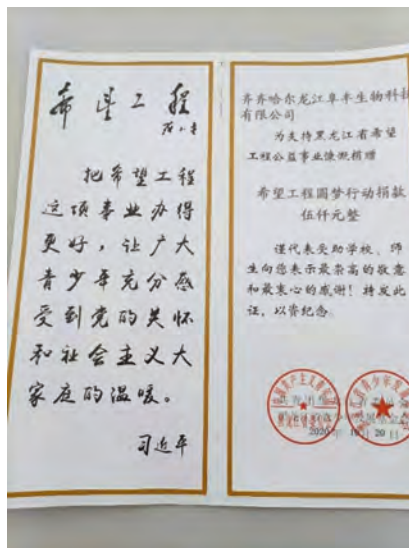 希望工程
邓小平
把希望工程
这项事业办得
更好，让广大
青少年充分感
受到党的关怀
和社会主义大
家庭的温暖。
习近平
齐齐哈尔龙江阜丰生物科技
有限公司
为支持黑龙江省希望
工程公益事业慷慨捐赠
希望工程圆梦行动捐款
伍仟元整
谨代表受助学校、师
生向您表示最崇高的敬意
和最衷心的感谢！特发此
证，以资纪念
2020年10月20日